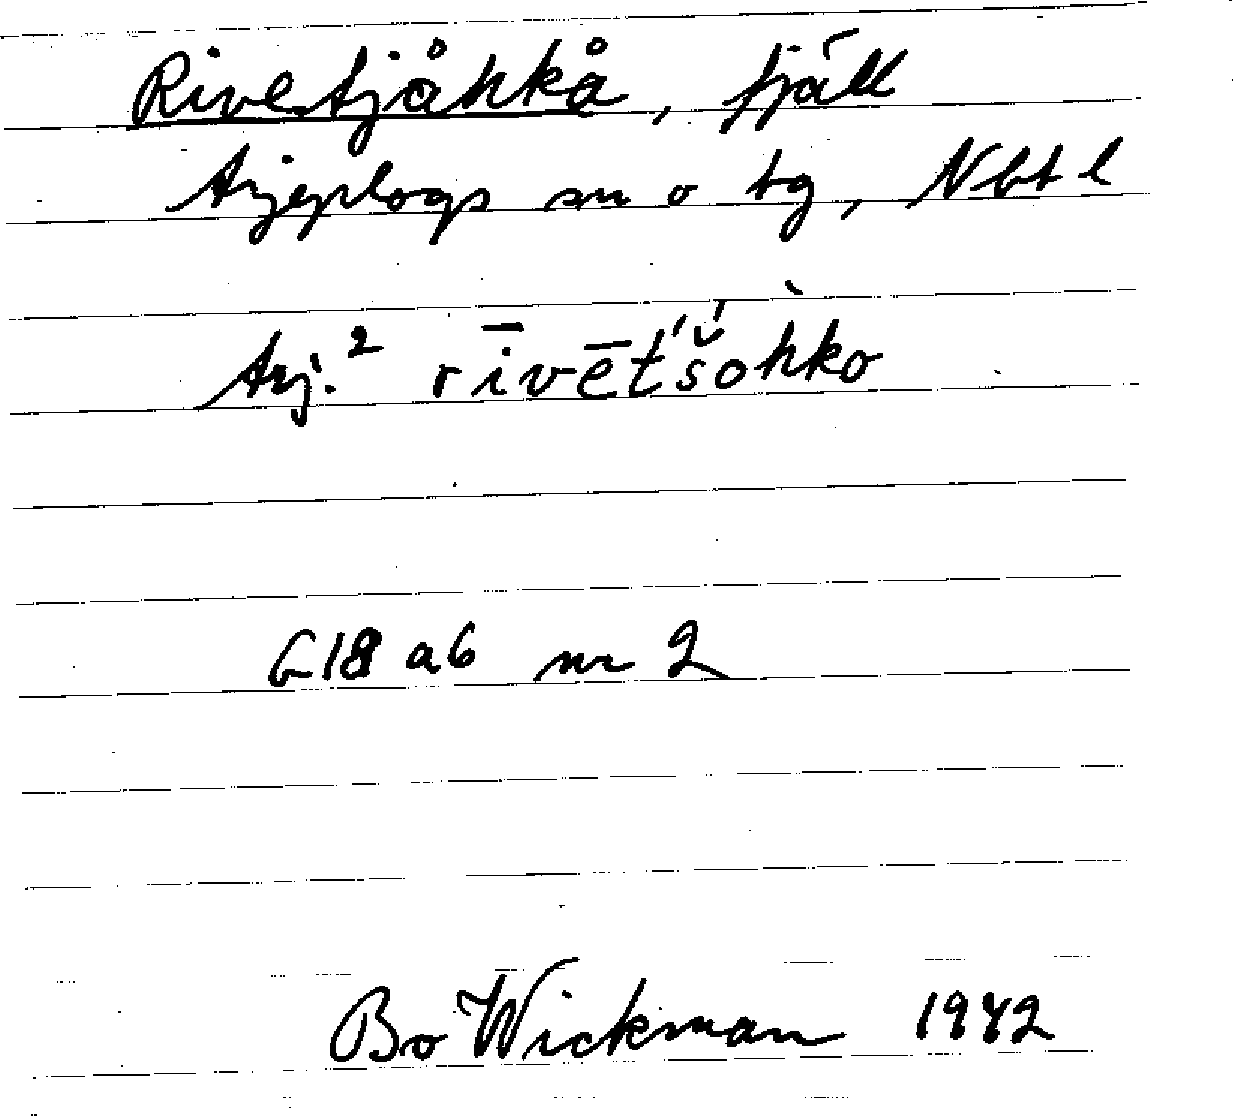 Rivetjåhkå, fjäll
Arjeplogs sn o tg, Nbt l
Arj.² rīvēt́š́òhko
G18 a6 nr 2
Bo Wickman 1942